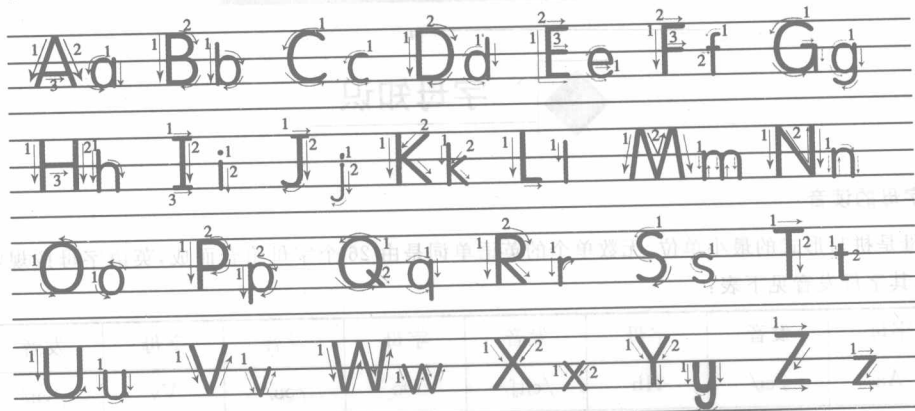 Aa Bb Cc Dd Ee Ff Gg
Hh Ii Jj Kk Ll Mm Nn
Oo Pp Qq Rr Ss Tt
Uu Vv Ww Xx Yy Zz